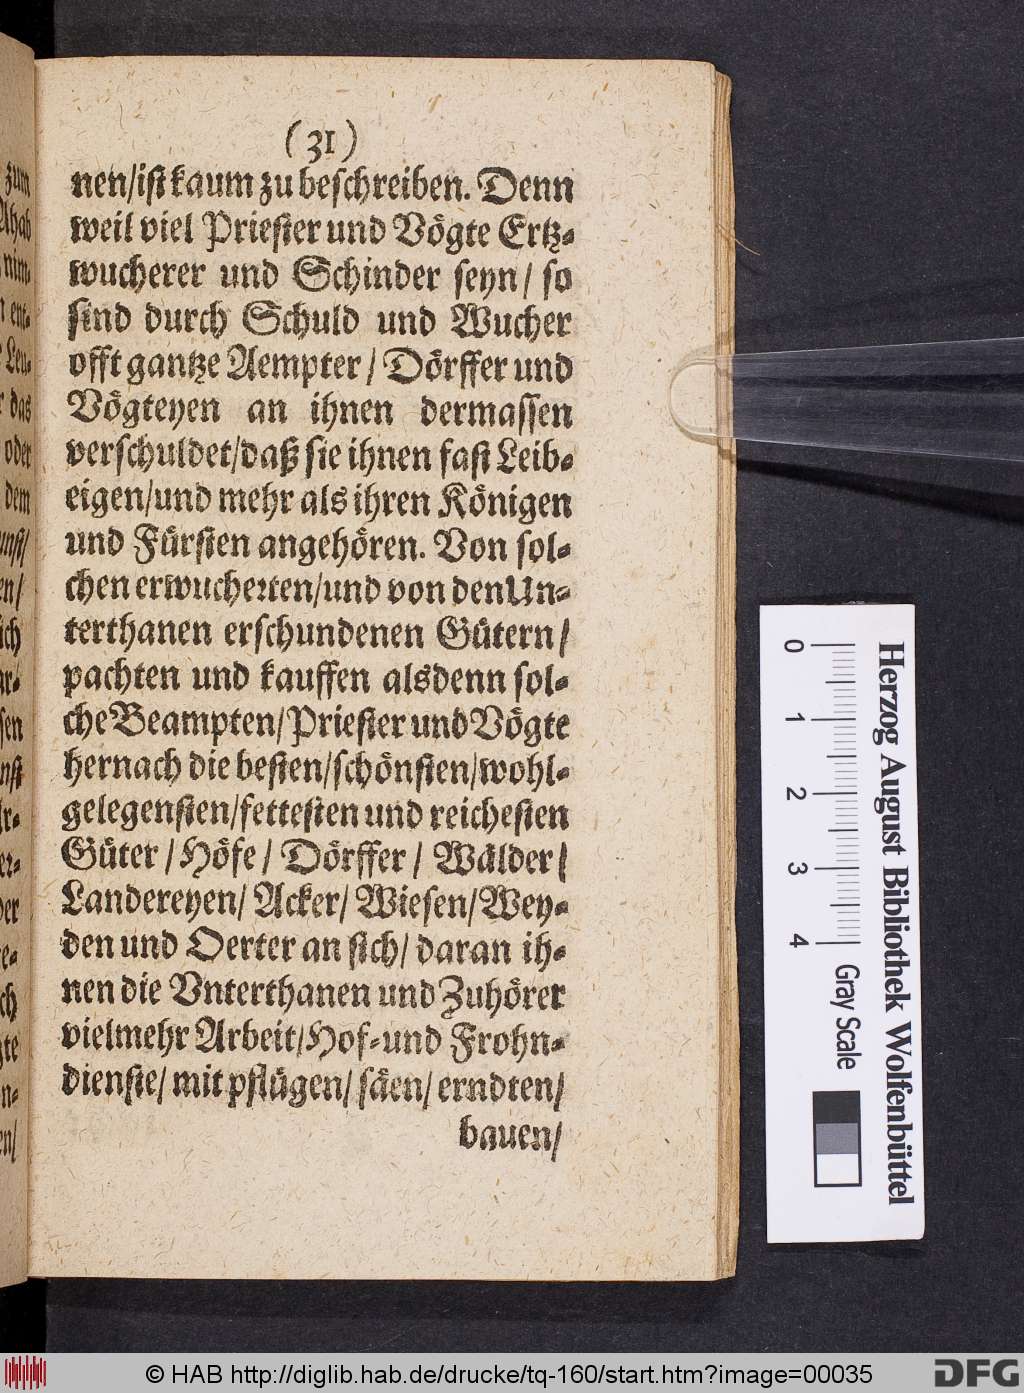 (31)
nen/ist kaum zu beschreiben. Denn
weil viel Priester und Vögte Ertz-
wucherer und Schinder seyn/ so
sind durch Schuld und Wucher
offt gantze Aempter/ Dörffer und
Vögteyen an ihnen dermassen
verschuldet/daß sie ihnen fast Leib-
eigen/und mehr als ihren Königen
und Fürsten angehören. Von sol-
chen erwucherten/und von den Un-
terthanen erschundenen Gütern/
pachten und kauffen alsdenn sol-
che Beampten/Priester und Vögte
hernach die besten/schönsten/wohl-
gelegensten/fettesten und reichesten
Güter / Höfe / Dörffer / Wälder/
Landereyen/ Acker/ Wiesen/Wey-
den und Oerter an sich/ daran ih-
nen die Vnterthanen und Zuhörer
vielmehr Arbeit/Hof-und Frohn-
dienste/ mit pflügen/ säen/ erndten/
bauen/
zum
Ahab
ent-
Leu-
das
oder
dem
0 1 2 3 4
Gray Scale
Herzog August Bibliothek Wolfenbüttel
© HAB http://diglib.hab.de/drucke/tq-160/start.htm?image=00035
DFG